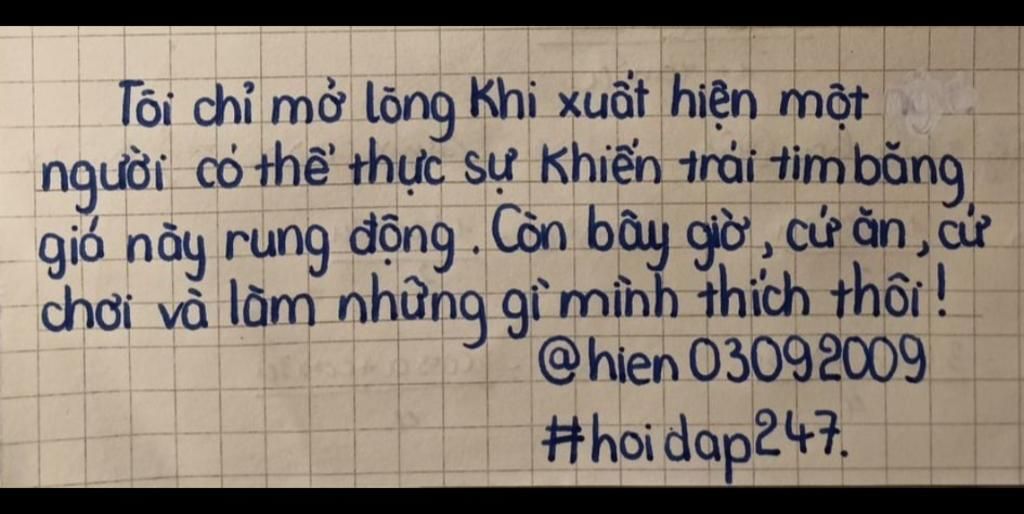 Tôi chỉ mở lòng khi xuất hiện một
người có thể thực sự khiến trái tim băng
giá này rung động. Còn bây giờ, cứ ăn, cứ
chơi và làm những gì mình thích thôi!
@hien03092009
#hoidap247.